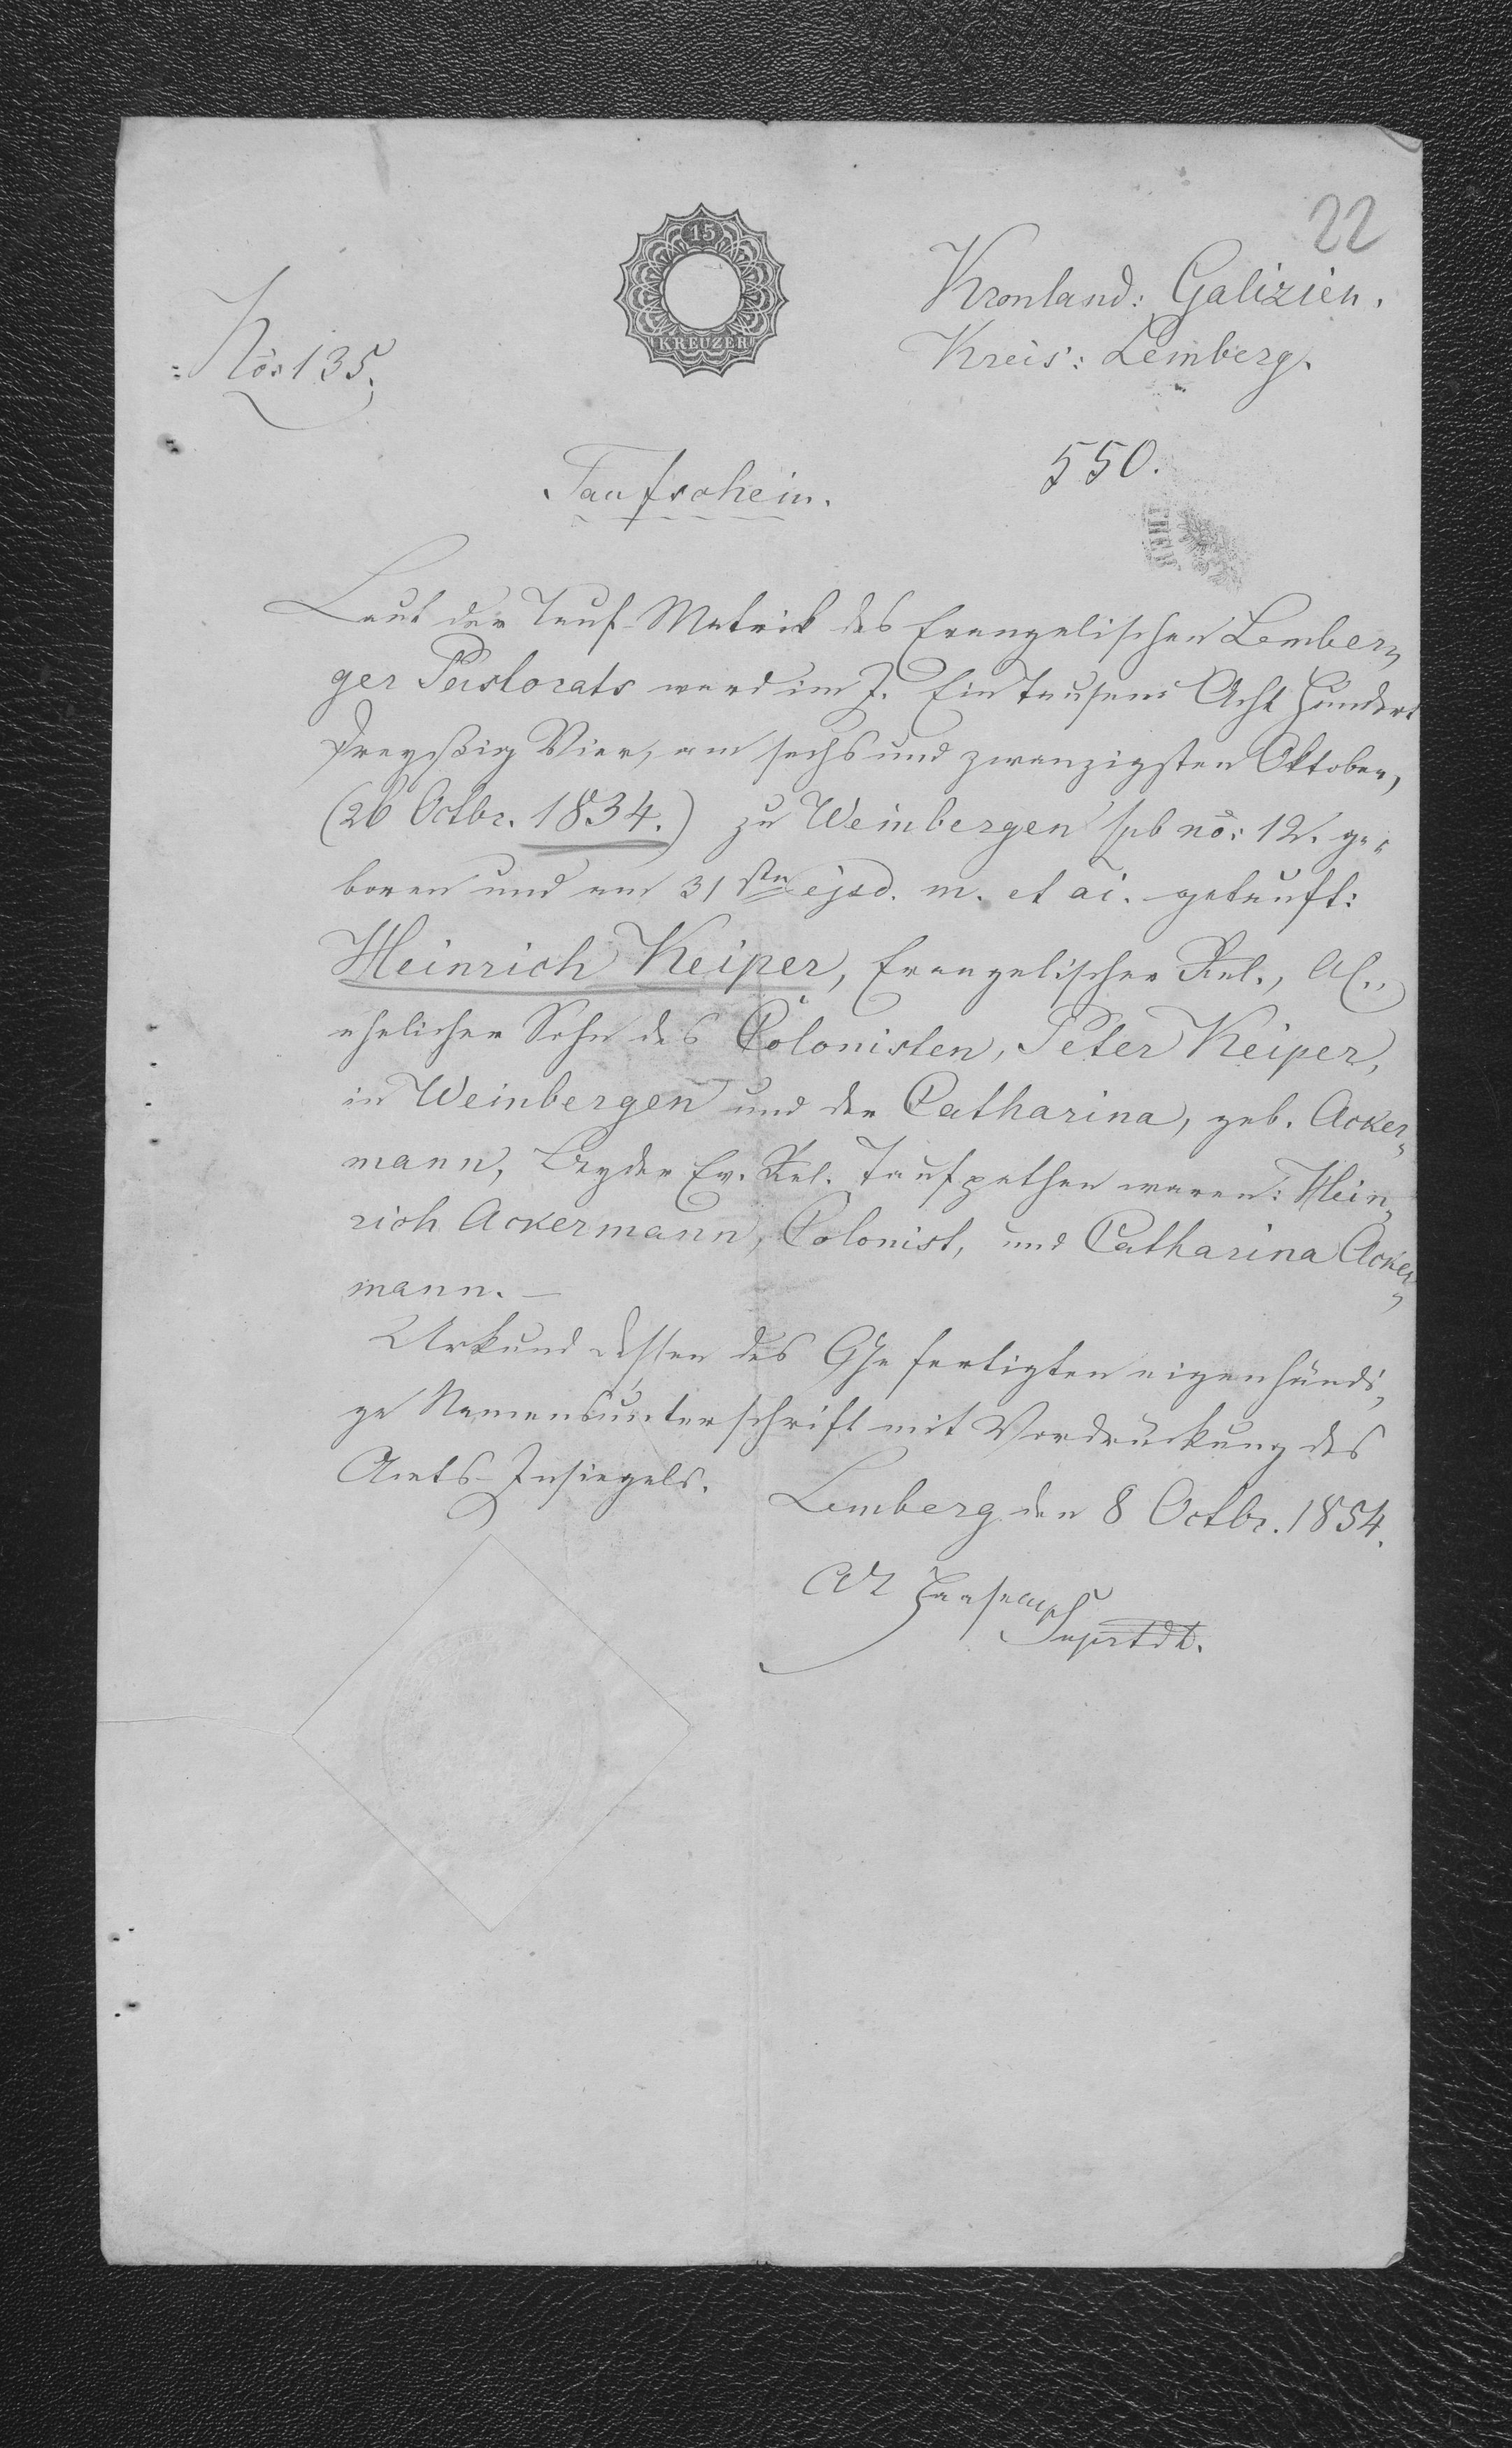 22
15
KREUZER
Kronland: Galizien.
Kreis: Lemberg.
Nō: 135.
550.
Taufschein.
Laut der Tauf-Matrik des Evangelischen Lember„
ger Pastorats ward im J. Ein Tausend Acht Hundert
Dreyßig Vier, am sechs und zwanzigsten Oktober,
(26 Octbr. 1834.) zu Weinbergen sub nō: 12. ge„
boren und am 31sten ejsd. m. et ai. getauft:
Heinrich Keiper, Evangelischer Rel., AC.,
ehelicher Sohn des Colonisten, Peter Keiper,
in Weinbergen und der Catharina, geb. Acker„
mann, Beyder Ev. Rel. Taufpathen waren: Hein„
rich Ackermann, Colonist, und Catharina Acker„
mann. —
Urkund dessen des Gefertigten eigenhändi„
ge Namensunterschrift mit Vordrückung des
Amts-Insiegels.
Lemberg den 8 Octbr. 1854.
Suprtdt.